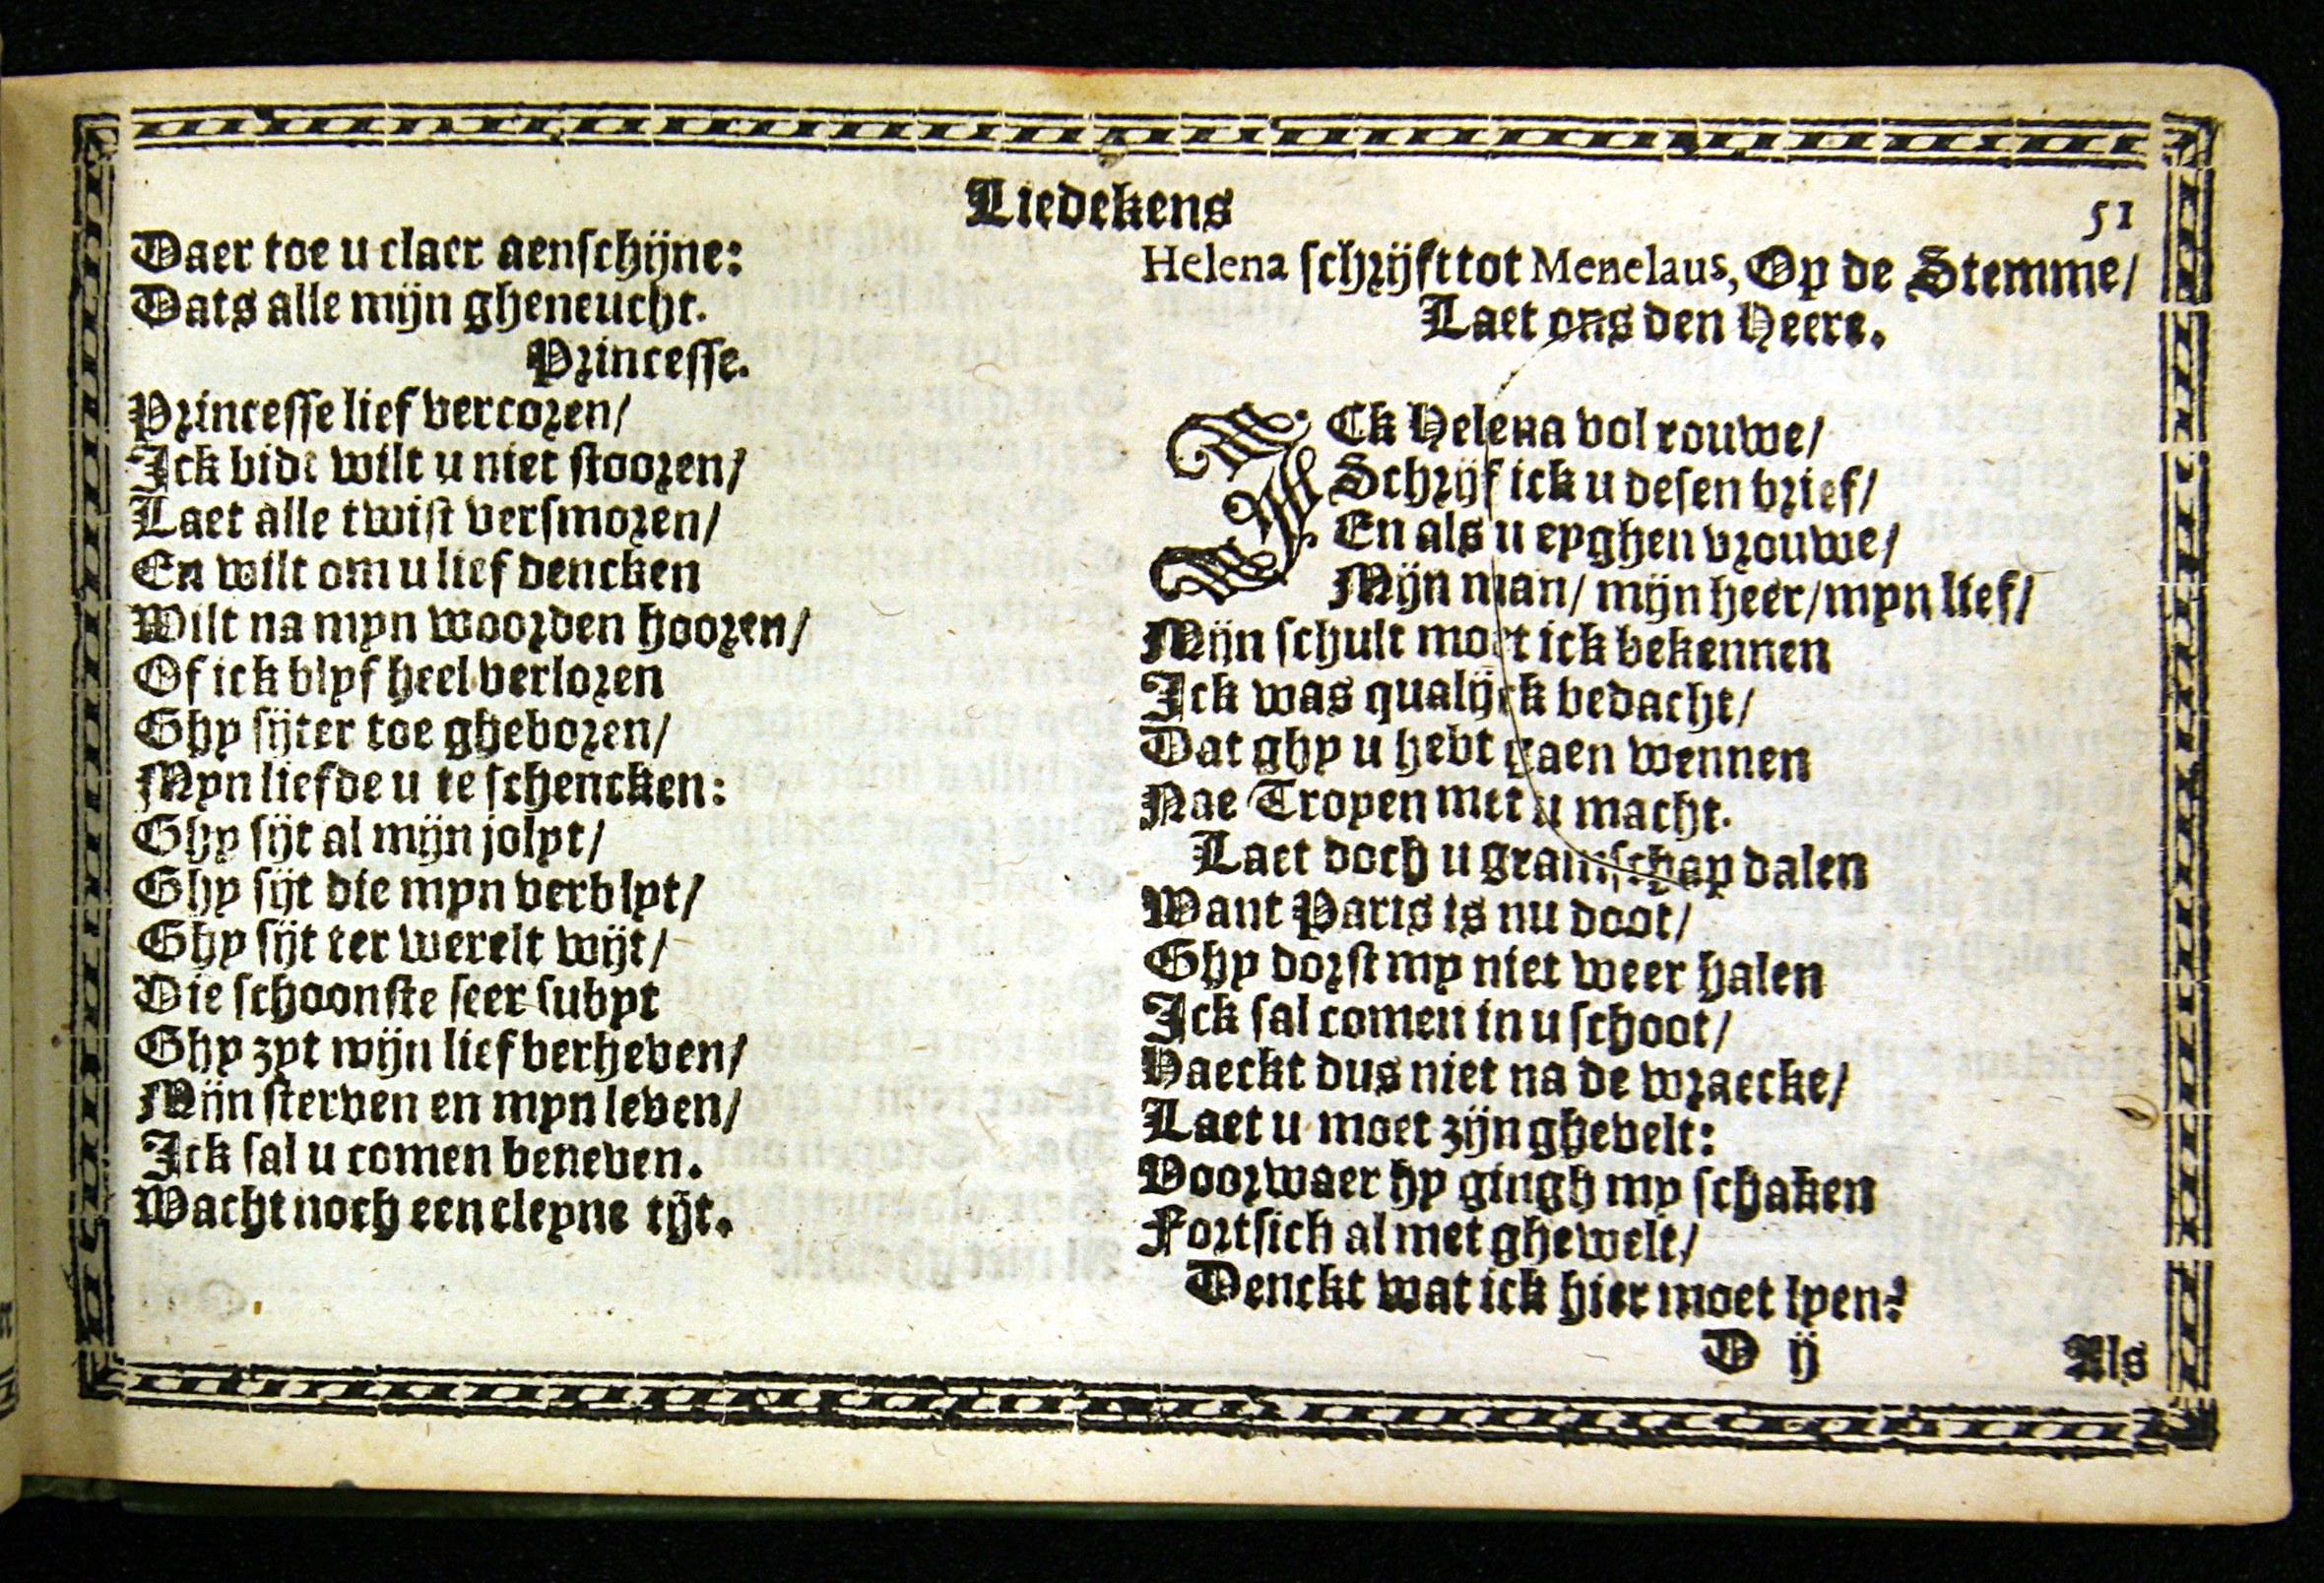 Liedekens
51
Daer toe u claer aenschijne:
Dats alle mijn gheneucht.
Princesse.
Princesse lief vercoren/
Ick bidt wilt u niet stooren/
Laet alle twist versmoren/
En wilt om u lief dencken
Wilt na myn woorden hooren/
Of ick blyf heel verloren
Ghy sijter toe gheboren/
Myn liefde u te schencken:
Ghy sijt al mijn jolyt/
Ghy sijt die myn verblyt/
Ghy sijt ter werelt wijt/
Die schoonste seer subyt
Ghy zyt mijn lief verheven/
Mijn sterven en myn leven/
Ick sal u comen beneven.
Wacht noch een cleyne tijt.
Helena schrijft tot Menelaus, Op de Stemme/
Laet ons den Heere.
ICk Helena vol rouwe/
Schrijf ick u desen brief/
En als u eyghen vrouwe/
Mijn man/ mijn heer/ myn lief/
Mijn schult moet ick bekennen
Ick was qualijck bedacht/
Dat ghy u hebt gaen wennen
Nae Troyen met u macht.
Laet doch u gramschap dalen
Want Paris is nu doot/
Ghy dorst my niet weer halen
Ick sal comen in u schoot/
Haeckt dus niet na de wraecke/
Laet u moet zijn ghevelt:
Voorwaer hy gingh my schaken
Fortsich al met ghewelt/
Denckt wat ick hier moet lyen?
D ij
Als